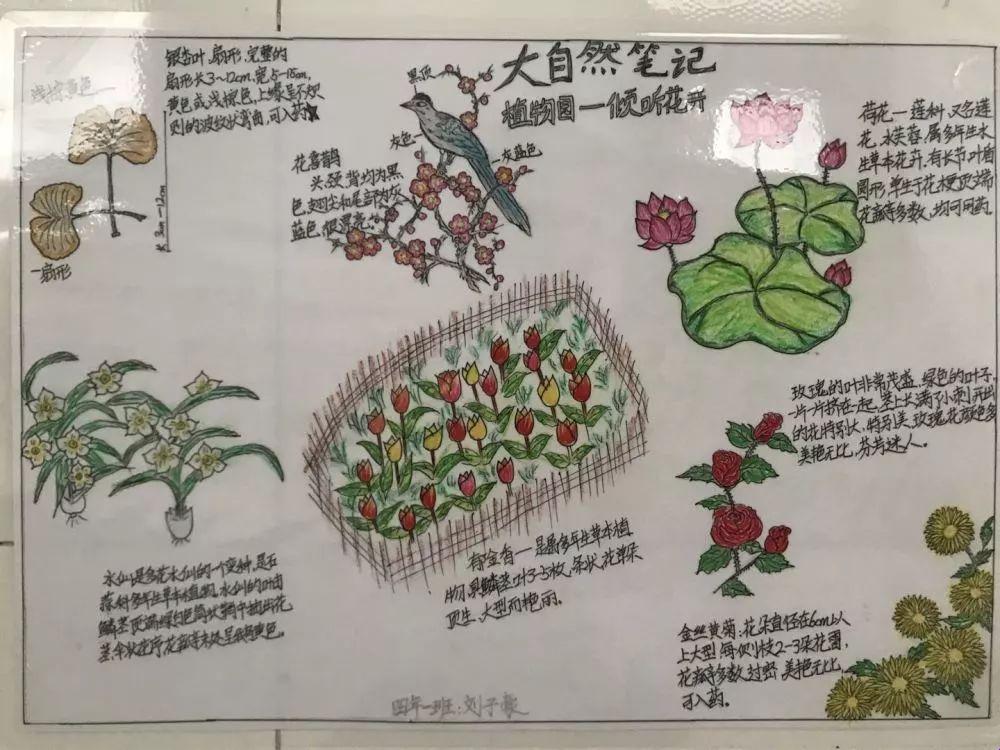 大自然笔记
植物园一倾听花开
浅棕黄色
银杏叶,扇形,完整的
扇形长3~12cm,宽5-15cm,
黄色或浅棕色,上缘呈不规
则的波纹状弯曲,可入药
长 3cm—12cm
扇形
黑顶
灰色
灰蓝色
花喜鹊
头,颈,背均为黑
色,翅尖和尾部为灰
蓝色,很漂亮。
荷花一莲科,又名莲
花,水芙蓉,属多年生水
生草本花卉,有长节,叶盾
圆形,单生于花梗顶端
花瓣多数,均可用药
玫瑰的叶非常茂盛,绿色的叶子,
一片一片挤在一起,茎上长满了小刺,开出
的花特别大,特别美,玫瑰花颜色多
美艳无比,芬芳迷人。
水仙是多花水仙的一个变种,是石
蒜科多年生草本植物,水仙的叶由
鳞茎顶端绿白色筒状鞘中抽出花
茎,伞状花序,花瓣
郁金香一是属多年生草本植
物,具鳞茎,叶3-5枚,条状,花单朵
顶生,大型而艳丽。
金丝黄菊:花朵直径在6cm以
上大型,每侧枝2-3朵花蕾,
花瓣多数,美艳无比,
可入药。
四年一班:刘子豪